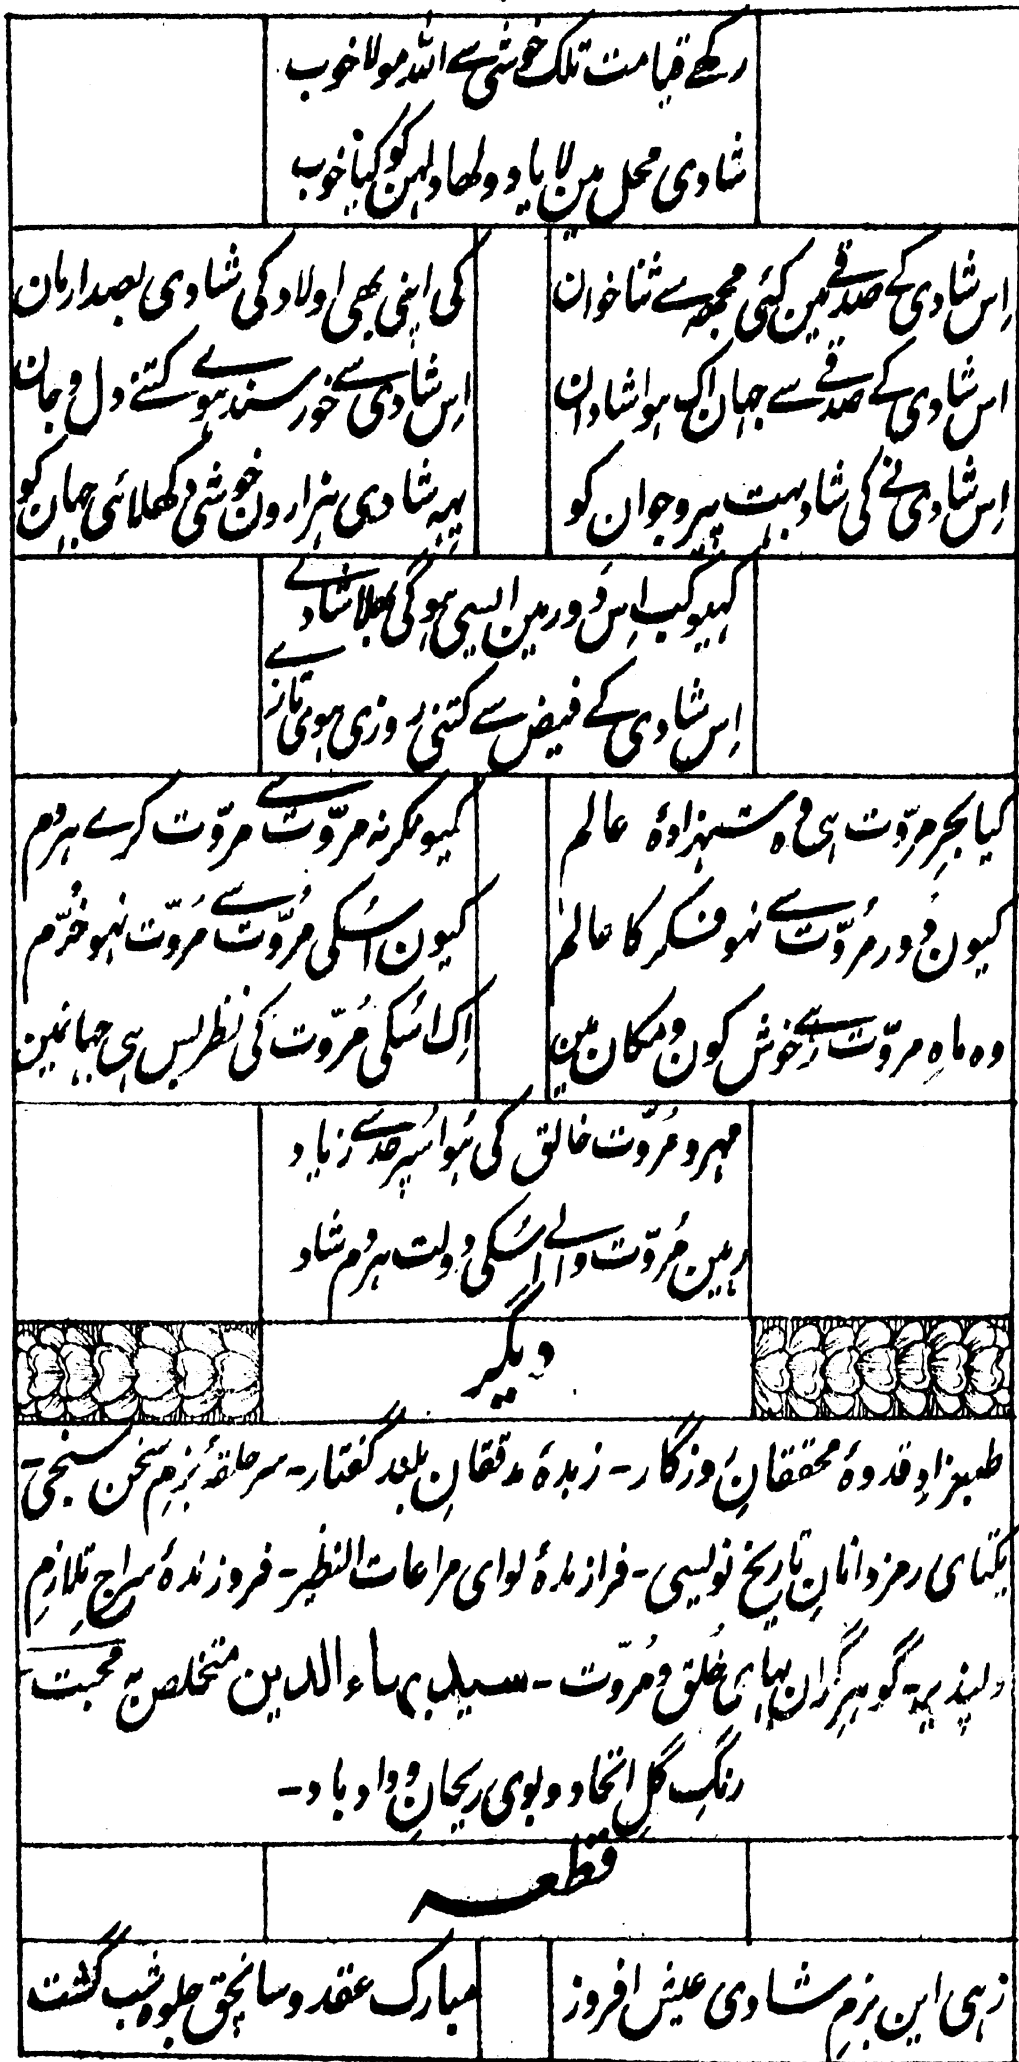 رکھے قیامت تلک خوشی سے اللہ مولا خوب
شادی محل مین لایا دولھا دلہن کو کیا خوب
اِس شادی کے صدقے مین کئی مجھہ سے ثنا خوان کی اپنی بھی اولاد کی شادی بصد ارمان
اس شادی کے صدقے سے جہان اک ہوا شادان اِس شادی سے خورسند ہوے کتنے دل و جان
اِس شادی نے کی شاد بہت پیر و جوان کو یہہ شادی ہزارون خوشی دکھلائی جہان کو
کہیو کب اِس دَور مین ایسی ہوگی بھلا شادے
اِس شادی کے فیض سے کتنی روزی ہوی تازے
کیا بحرِ مروّت ہی وہ شہزادۂ عالم کیونکر نہ مروّت سے مروّت کرے ہر دم
کیون دَور مُروّت سے نہو فکر کا عالم کیون اُسکی مُروّت سے مُروّت نہو خُرّم
وہ ماہِ مروّت رہے خوش کون و مکان مین اِک اُسکی مُروّت کی نظر بس ہی جہانمین
مہر و مُروّت خالق کی ہُو اُسپر حد سے زیاد
رہین مُروّت والے اُسکی دولت ہر دم شاد
دیگر
طبعزادِ قدوۂ محققانِ روزگار۔ زبدۂ مدققانِ بلند گفتار۔ سر حلقۂ بزمِ سخن سنجی۔
یکتای رمزدانانِ تاریخ نویسی۔ فرازندۂ لوای مراعات النظیر۔ فروزندۂ سراجِ تلازمِ
دلپذیر۔ گوہرِ گران بہای خُلق و مُروّت۔ سید بہاء الدین متخلص بہ محبت۔
رنگِ گلِ اتحاد و بوی ریحانِ وداد باد۔
قطعہ
زہی این بزمِ شادی عیش افروز مبارک عقد و سانچق جلوہ شب گشت